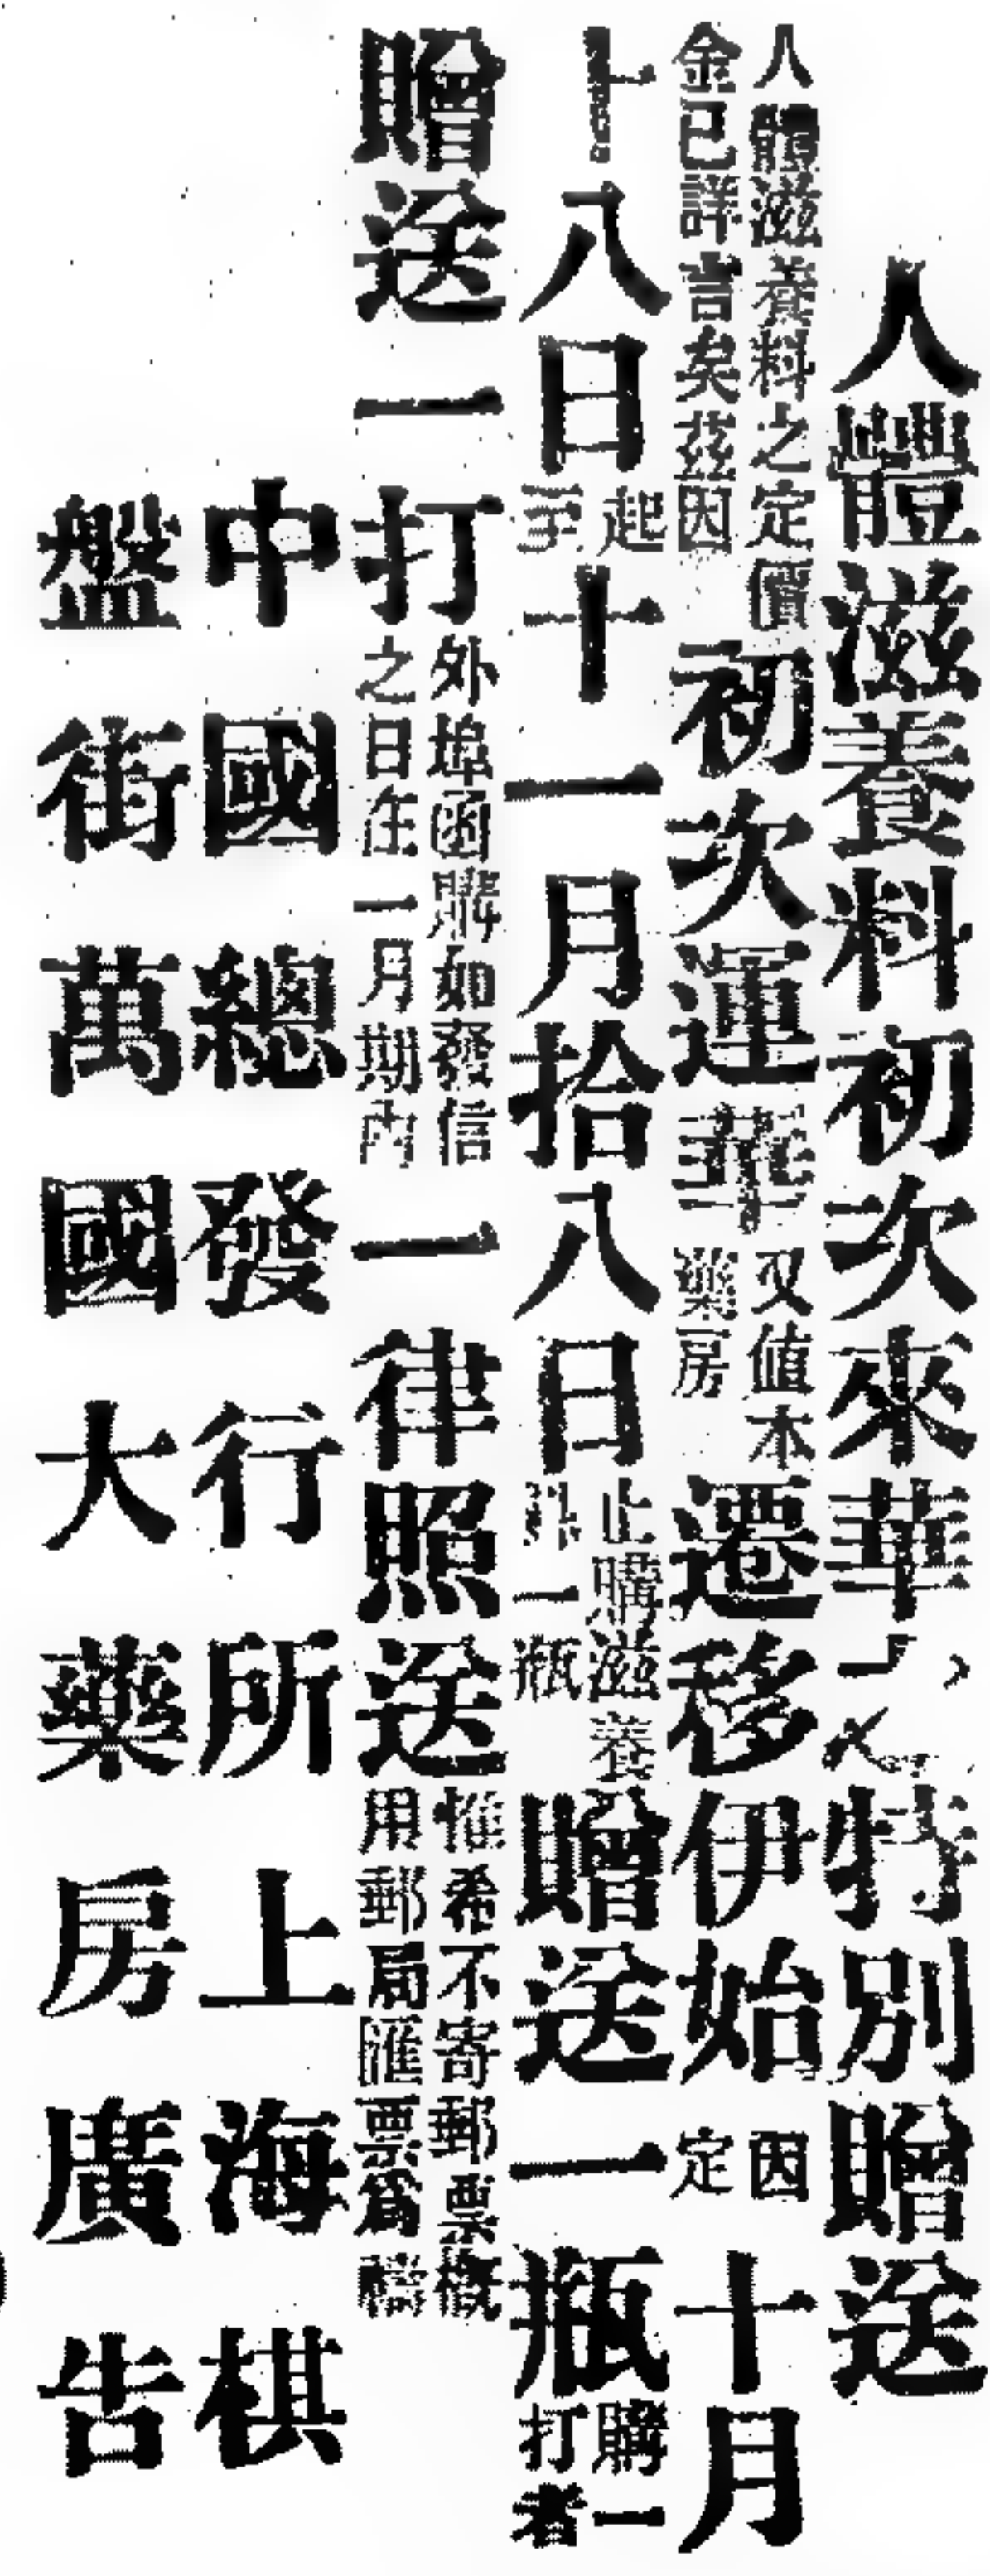 人體滋養料初次來華特別贈送
人體滋養料之定價
金已詳言矣茲因
初次運華
又值本
藥房
遷移伊始
因
定
十月
十八日
起
至
十一月拾八日
止購滋養
料一瓶
贈送一瓶
購一
打者
贈送一打
外埠函購如發信
之日在一月期內
一律照送
惟希不寄郵票概
用郵局匯票爲禱
中國總發行所上海棋
盤街萬國大藥房廣告